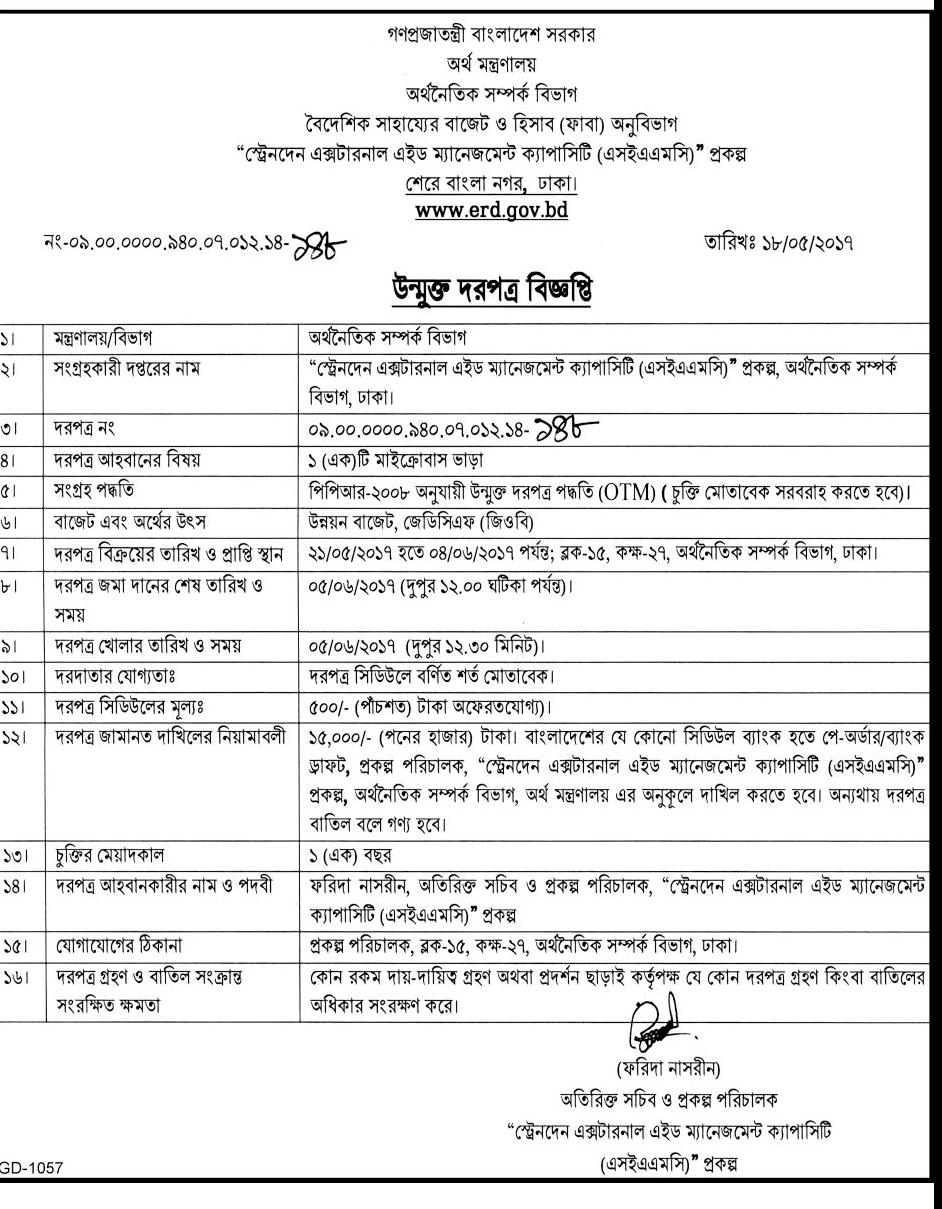 গণপ্রজাতন্ত্রী বাংলাদেশ সরকার
অর্থ মন্ত্রণালয়
অর্থনৈতিক সম্পর্ক বিভাগ
বৈদেশিক সাহায্যের বাজেট ও হিসাব (ফাবা) অনুবিভাগ
“স্ট্রেনদেন এক্সটারনাল এইড ম্যানেজমেন্ট ক্যাপাসিটি (এসইএএমসি)” প্রকল্প
শেরে বাংলা নগর, ঢাকা।
www.erd.gov.bd
নং-০৯.০০.০০০০.৯৪০.০৭.০১২.১৪-১৪৮ তারিখঃ ১৮/০৫/২০১৭
উন্মুক্ত দরপত্র বিজ্ঞপ্তি
১। মন্ত্রণালয়/বিভাগ অর্থনৈতিক সম্পর্ক বিভাগ
২। সংগ্রহকারী দপ্তরের নাম “স্ট্রেনদেন এক্সটারনাল এইড ম্যানেজমেন্ট ক্যাপাসিটি (এসইএএমসি)” প্রকল্প, অর্থনৈতিক সম্পর্ক
বিভাগ, ঢাকা।
৩। দরপত্র নং ০৯.০০.০০০০.৯৪০.০৭.০১২.১৪-১৪৮
৪। দরপত্র আহবানের বিষয় ১ (এক)টি মাইক্রোবাস ভাড়া
৫। সংগ্রহ পদ্ধতি পিপিআর-২০০৮ অনুযায়ী উন্মুক্ত দরপত্র পদ্ধতি (OTM) ( চুক্তি মোতাবেক সরবরাহ করতে হবে)।
৬। বাজেট এবং অর্থের উৎস উন্নয়ন বাজেট, জেডিসিএফ (জিওবি)
৭। দরপত্র বিক্রয়ের তারিখ ও প্রাপ্তি স্থান ২১/০৫/২০১৭ হতে ০৪/০৬/২০১৭ পর্যন্ত; ব্লক-১৫, কক্ষ-২৭, অর্থনৈতিক সম্পর্ক বিভাগ, ঢাকা।
৮। দরপত্র জমা দানের শেষ তারিখ ও ০৫/০৬/২০১৭ (দুপুর ১২.০০ ঘটিকা পর্যন্ত)।
সময়
৯। দরপত্র খোলার তারিখ ও সময় ০৫/০৬/২০১৭ (দুপুর ১২.৩০ মিনিট)।
১০। দরদাতার যোগ্যতাঃ দরপত্র সিডিউলে বর্ণিত শর্ত মোতাবেক।
১১। দরপত্র সিডিউলের মূল্যঃ ৫০০/- (পাঁচশত) টাকা অফেরতযোগ্য)।
১২। দরপত্র জামানত দাখিলের নিয়ামাবলী ১৫,০০০/- (পনের হাজার) টাকা। বাংলাদেশের যে কোনো সিডিউল ব্যাংক হতে পে-অর্ডার/ব্যাংক
ড্রাফট, প্রকল্প পরিচালক, “স্ট্রেনদেন এক্সটারনাল এইড ম্যানেজমেন্ট ক্যাপাসিটি (এসইএএমসি)”
প্রকল্প, অর্থনৈতিক সম্পর্ক বিভাগ, অর্থ মন্ত্রণালয় এর অনুকূলে দাখিল করতে হবে। অন্যথায় দরপত্র
বাতিল বলে গণ্য হবে।
১৩। চুক্তির মেয়াদকাল ১ (এক) বছর
১৪। দরপত্র আহবানকারীর নাম ও পদবী ফরিদা নাসরীন, অতিরিক্ত সচিব ও প্রকল্প পরিচালক, “স্ট্রেনদেন এক্সটারনাল এইড ম্যানেজমেন্ট
ক্যাপাসিটি (এসইএএমসি)” প্রকল্প
১৫। যোগাযোগের ঠিকানা প্রকল্প পরিচালক, ব্লক-১৫, কক্ষ-২৭, অর্থনৈতিক সম্পর্ক বিভাগ, ঢাকা।
১৬। দরপত্র গ্রহণ ও বাতিল সংক্রান্ত কোন রকম দায়-দায়িত্ব গ্রহণ অথবা প্রদর্শন ছাড়াই কর্তৃপক্ষ যে কোন দরপত্র গ্রহণ কিংবা বাতিলের
সংরক্ষিত ক্ষমতা অধিকার সংরক্ষণ করে।
(ফরিদা নাসরীন)
অতিরিক্ত সচিব ও প্রকল্প পরিচালক
“স্ট্রেনদেন এক্সটারনাল এইড ম্যানেজমেন্ট ক্যাপাসিটি
(এসইএএমসি)” প্রকল্প
GD-1057